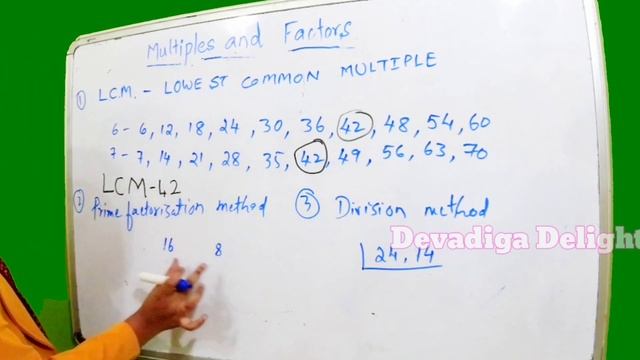 Multiples and Factors
① L.C.M. - LOWEST COMMON MULTIPLE
6 - 6, 12, 18, 24, 30, 36, 42, 48, 54, 60
7 - 7, 14, 21, 28, 35, 42, 49, 56, 63, 70
LCM-42
② Prime factorisation method
③ Division method
16 8
24, 14
Devadiga Delight